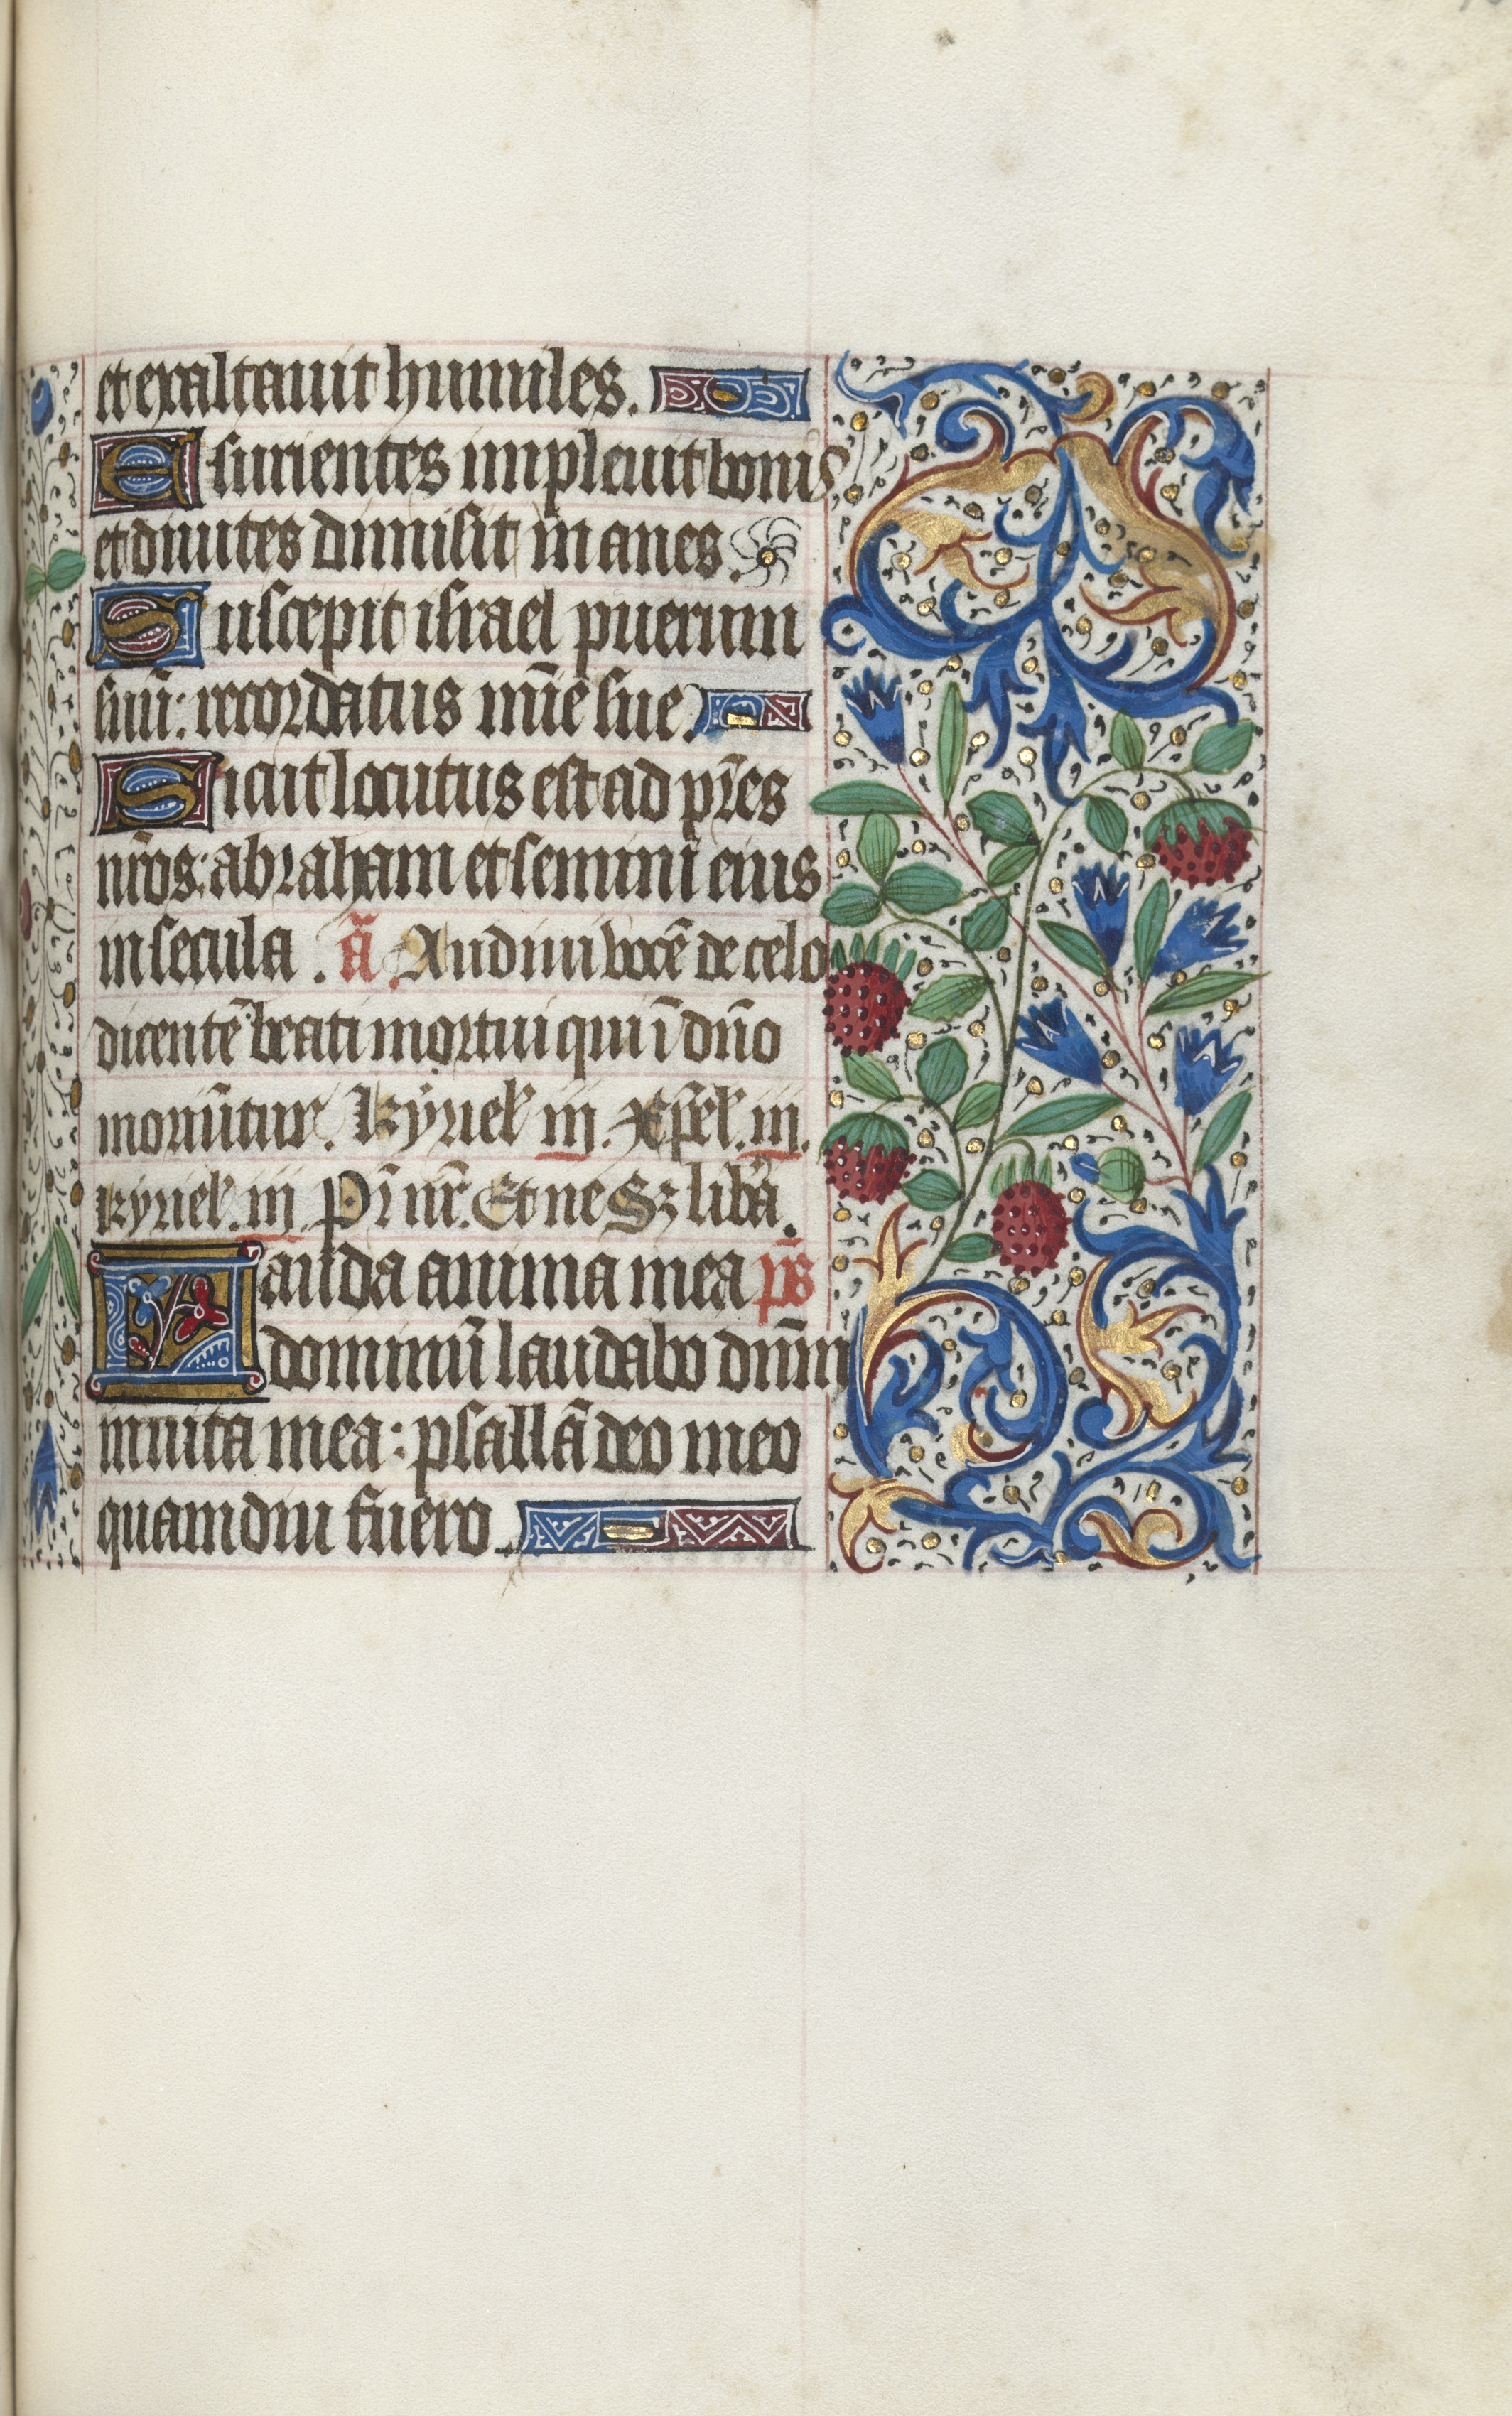 et exaltauit humiles.
Esurientes impleuit bonis
et diuites dimisit inanes.
Suscepit israel puerum
suū: recordatus mīe sue.
Sicut locutus est ad pr̄es
nr̄os: abraham et semini eius
in secula. ā Audiui vocē de celo
dicentē beati mortui qui ī dn̄o
moriūtur. Kyriel iij. Xp̄el. iij.
kyriel. iij Pr̄ nr̄. Et ne Sz libā.
Lauda anima mea ps̄
dominū laudabo dn̄m
in uita mea: psallā deo meo
quamdiu fuero.